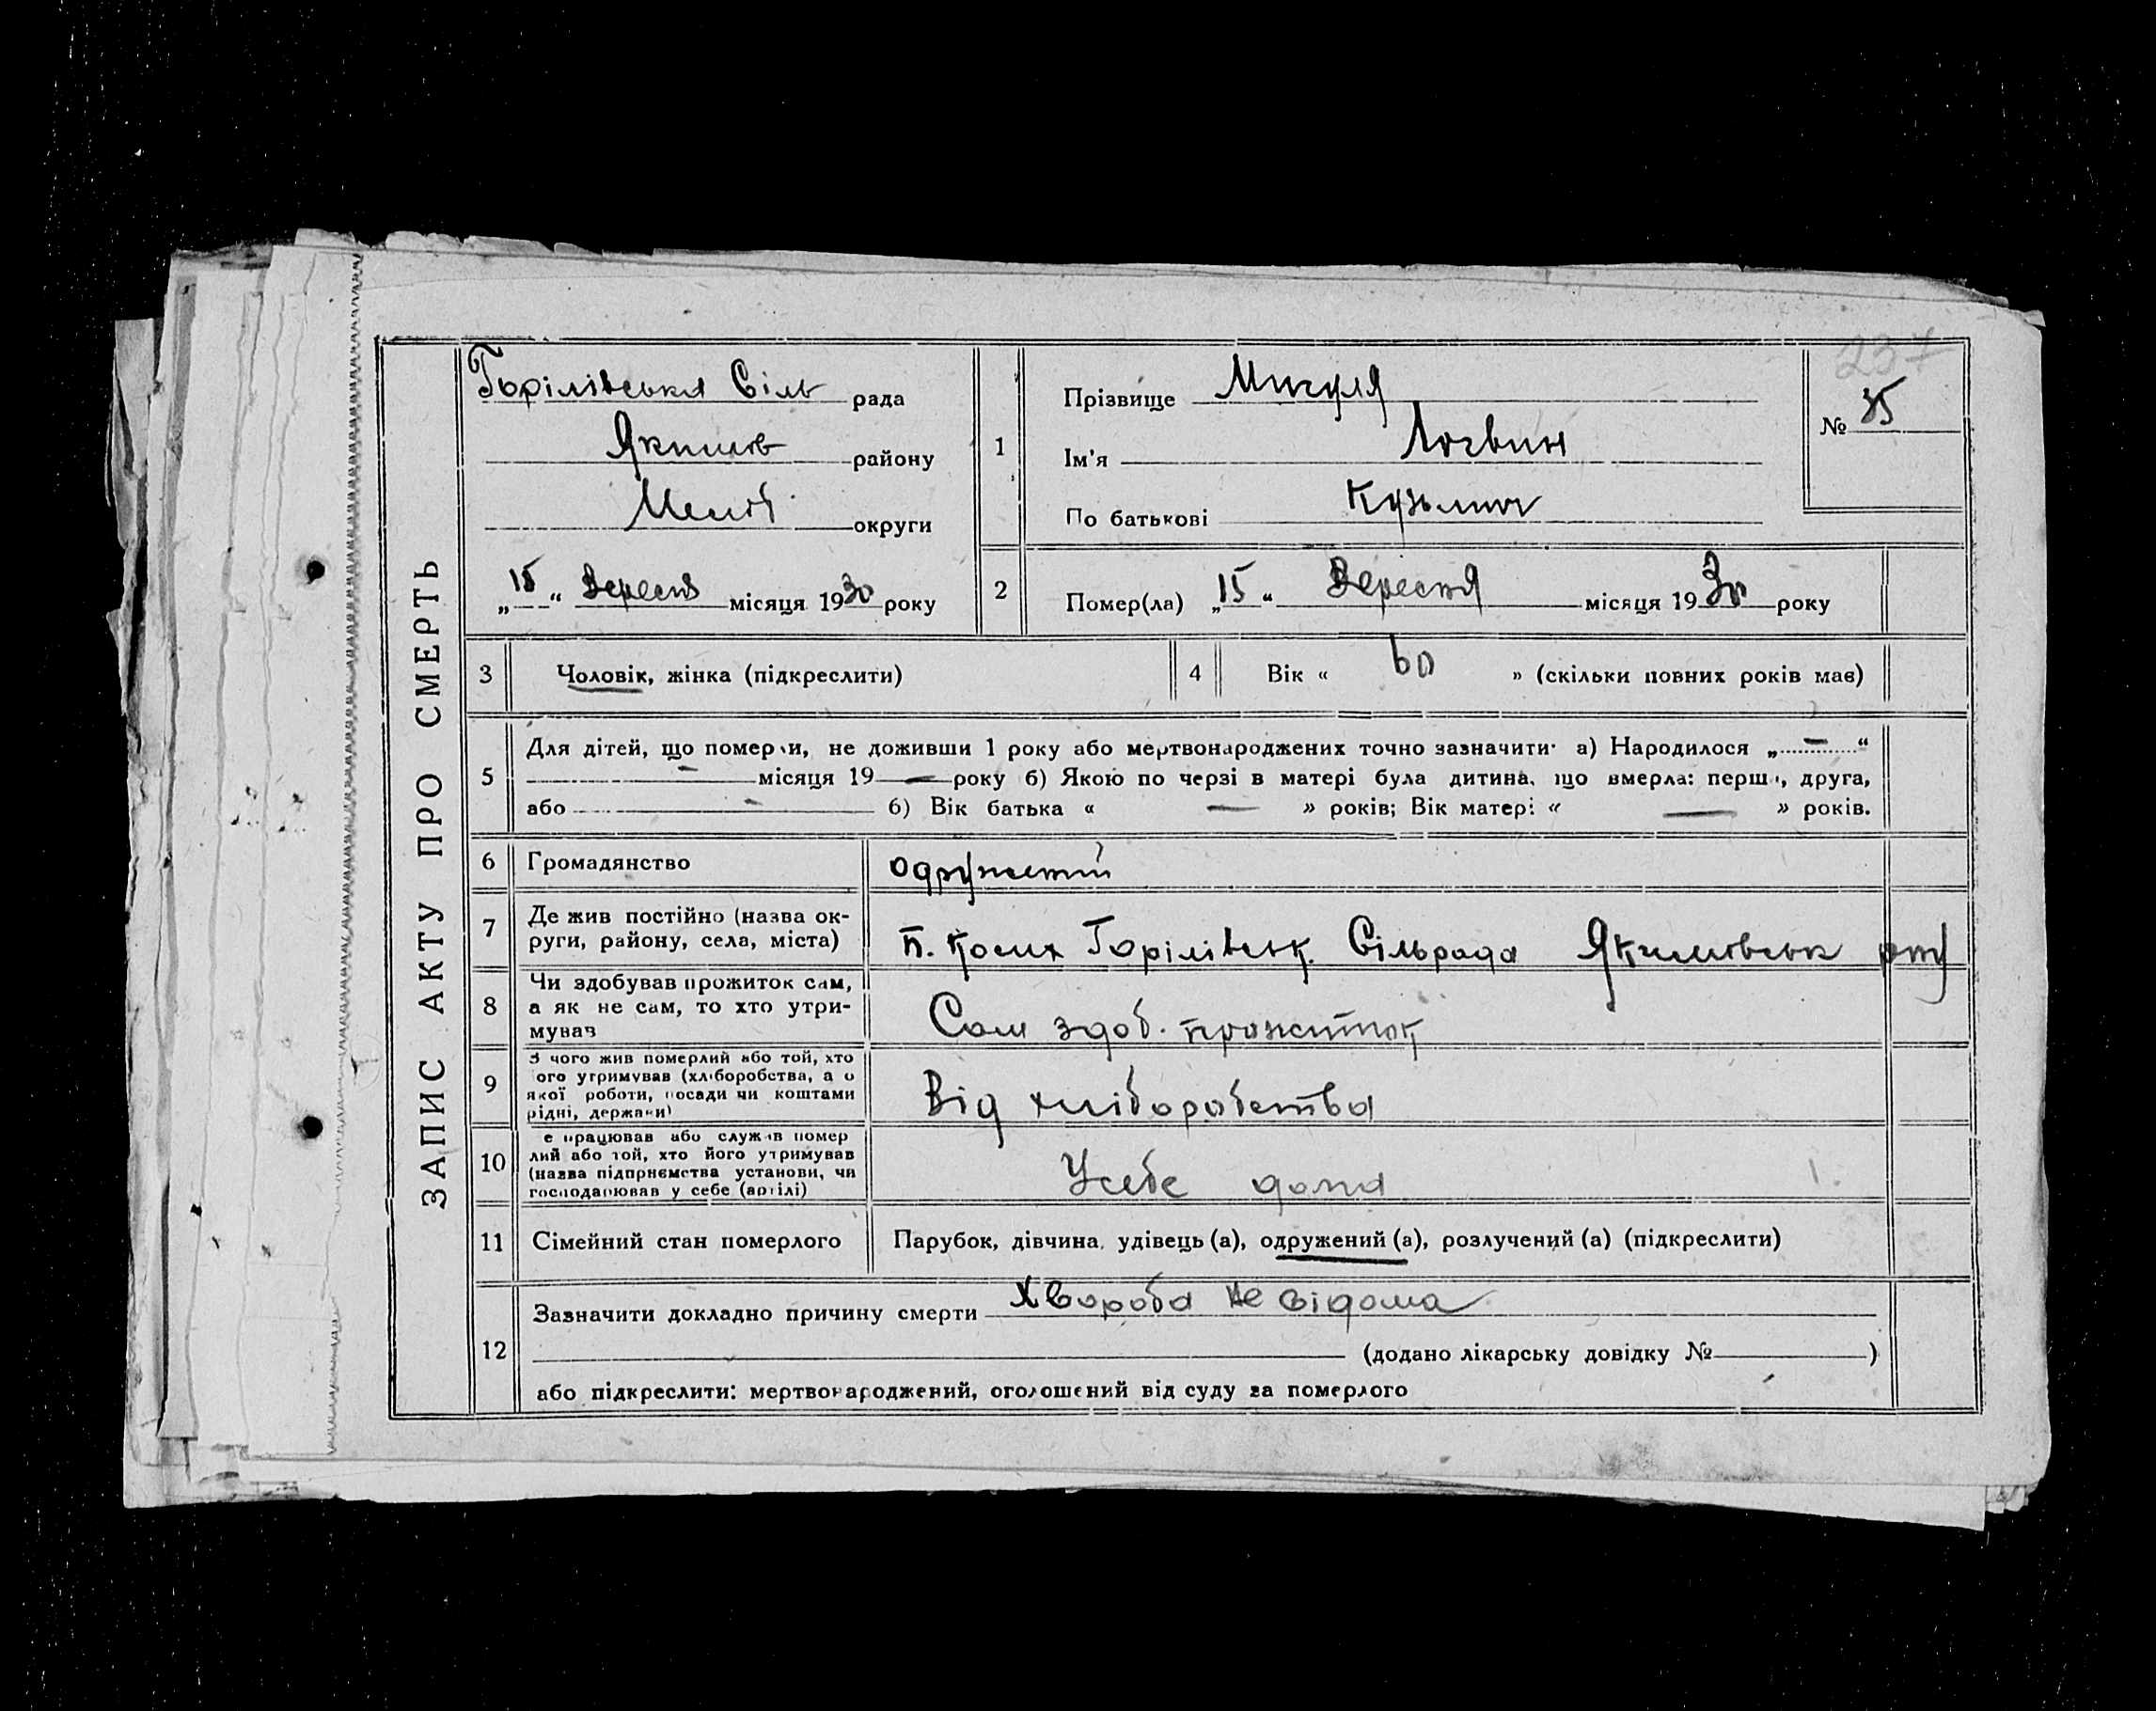 ЗАПИС АКТУ ПРО СМЕРТЬ
237
№ 35
Горілівська Сіль рада
Якимов району
Меліт. округи
„15“ Вересня місяця 1930 року
1
Прізвище Мигуля
Ім'я Логвин
По батькові Кузьмич
2 Помер(ла) „15“ Вересня місяця 1930 року
3 Чоловік, жінка (підкреслити)
4 Вік « 60 » (скільки повних років має)
5 Для дітей, що померли, не доживши 1 року або мертвонароджених точно зазначити: а) Народилося „—“
— місяця 19— року б) Якою по черзі в матері була дитина, що вмерла: перша, друга,
або — 6) Вік батька « — » років; Вік матері « — » років.
6 Громадянство одружений
7 Де жив постійно (назва ок-
руги, району, села, міста) Горілівськ. Сільрада Якимовськ
8 Чи здобував прожиток сам,
а як не сам, то хто утри-
мував Сам здоб. прожиток
9 З чого жив померлий або той, хто
його утримував (хліборобства, а о
якої роботи, посади чи коштами
рідні, держави) Від хліборобства
10 е працював або служив помер
лий або той, хто його утримував
(назва підприємства установи, чи
господарював у себе (артілі) Усебе дома
11 Сімейний стан померлого Парубок, дівчина, удівець (а), одружений (а), розлучений (а) (підкреслити)
12 Зазначити докладно причину смерти Хвороба не відома
(додано лікарську довідку № )
або підкреслити: мертвонароджений, оголошений від суду за померлого